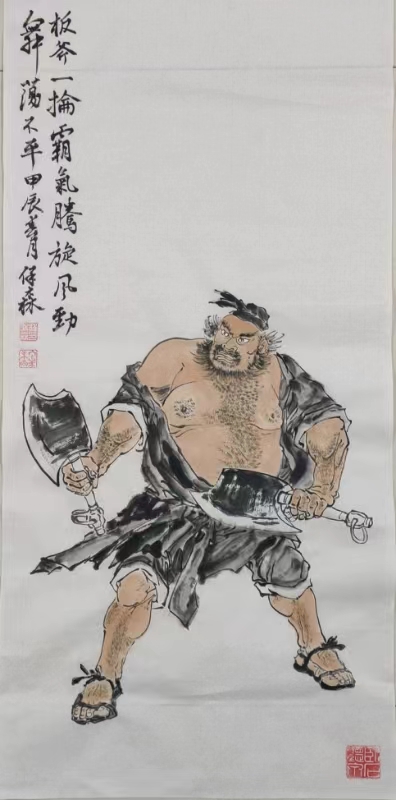 板斧一掄霸氣騰旋风勁
舞蕩不平甲辰春月保森